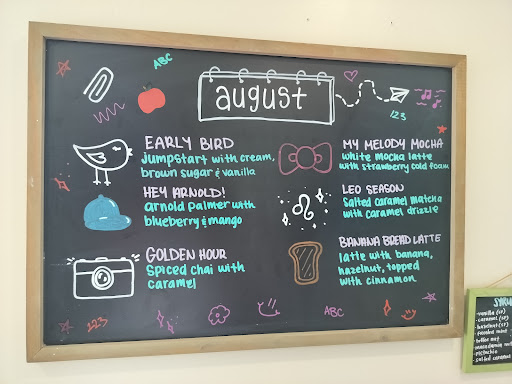 ABC
august
123
EARLY BIRD
Jumpstart with cream,
brown sugar & vanilla
HEY ARNOLD!
arnold palmer with
blueberry & mango
GOLDEN HOUR
Spiced chai with
caramel
MY MELODY MOCHA
white mocha latte
with strawberry cold foam
LEO SEASON
Salted caramel matcha
with caramel drizzle
BANANA BREAD LATTE
latte with banana,
hazelnut, topped
with cinnamon
123
ABC
-vanilla (SF)
-caramel (SF)
-hazelnut (SF)
-toffee nut
-macadamia
-pistachio
-salted caramel